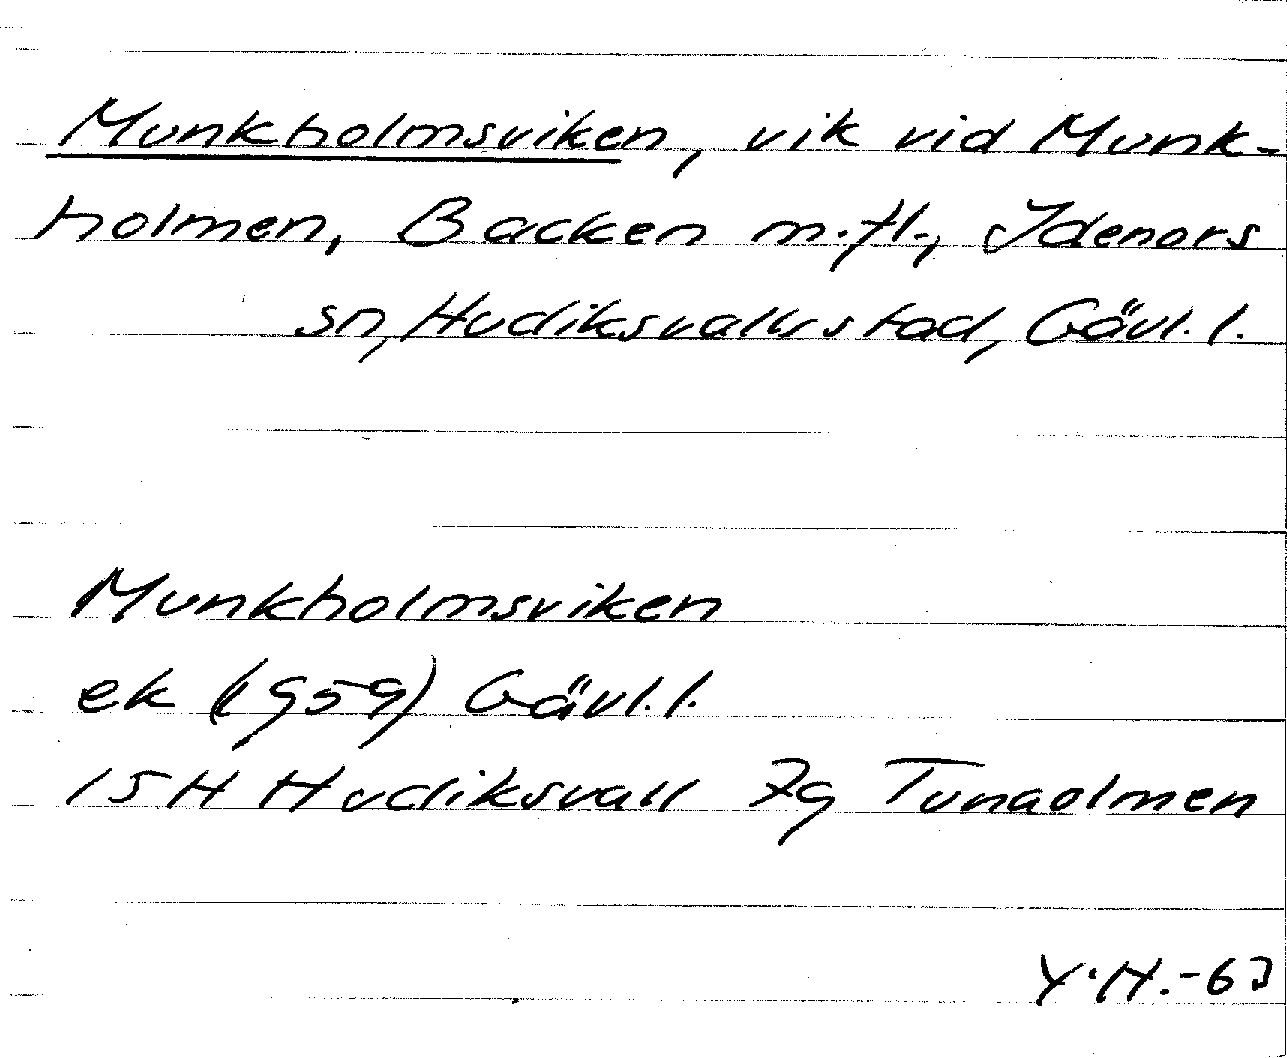 Munkholmsviken, vik vid Munk-
holmen, Backen m.fl., Idenors
sn, Hudiksvalls stad, Gävl. l.
Munkholmsviken
ek (1959) Gävl. l.
15H Hudiksvall 7g Tunaolmen
Y.H.-63